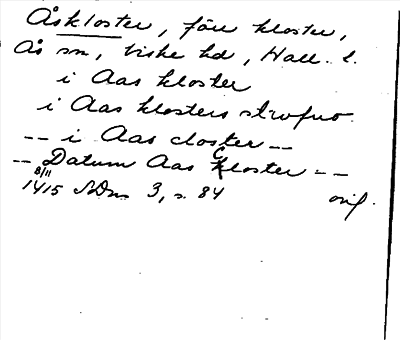 Åskloster, förr kloster,
Ås sn, Viske hd, Hall. l.
i Aas kloster
i Aas klosters
-- i Aas closter --
-- Datum Aas Closter --
8/11
1415 SDns 3, s. 84 orig.